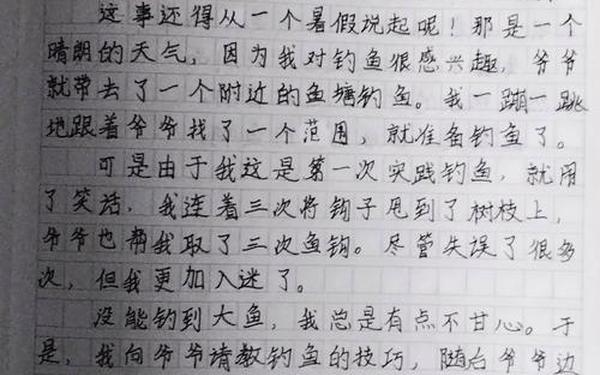 这事还得从一个暑假说起呢！那是一个
晴朗的天气，因为我对钓鱼很感兴趣，爷爷
就带去了一个附近的鱼塘钓鱼。我一蹦一跳
地跟着爷爷找了一个范围，就准备钓鱼了。
可是由于我这是第一次实践钓鱼，就闹
了笑话，我连着三次将钩子甩到了树枝上，
爷爷也帮我取了三次鱼钩。尽管失误了很多
次，但我更加入迷了。
没能钓到大鱼，我总是有点不甘心。于
是，我向爷爷请教钓鱼的技巧，随后爷爷边